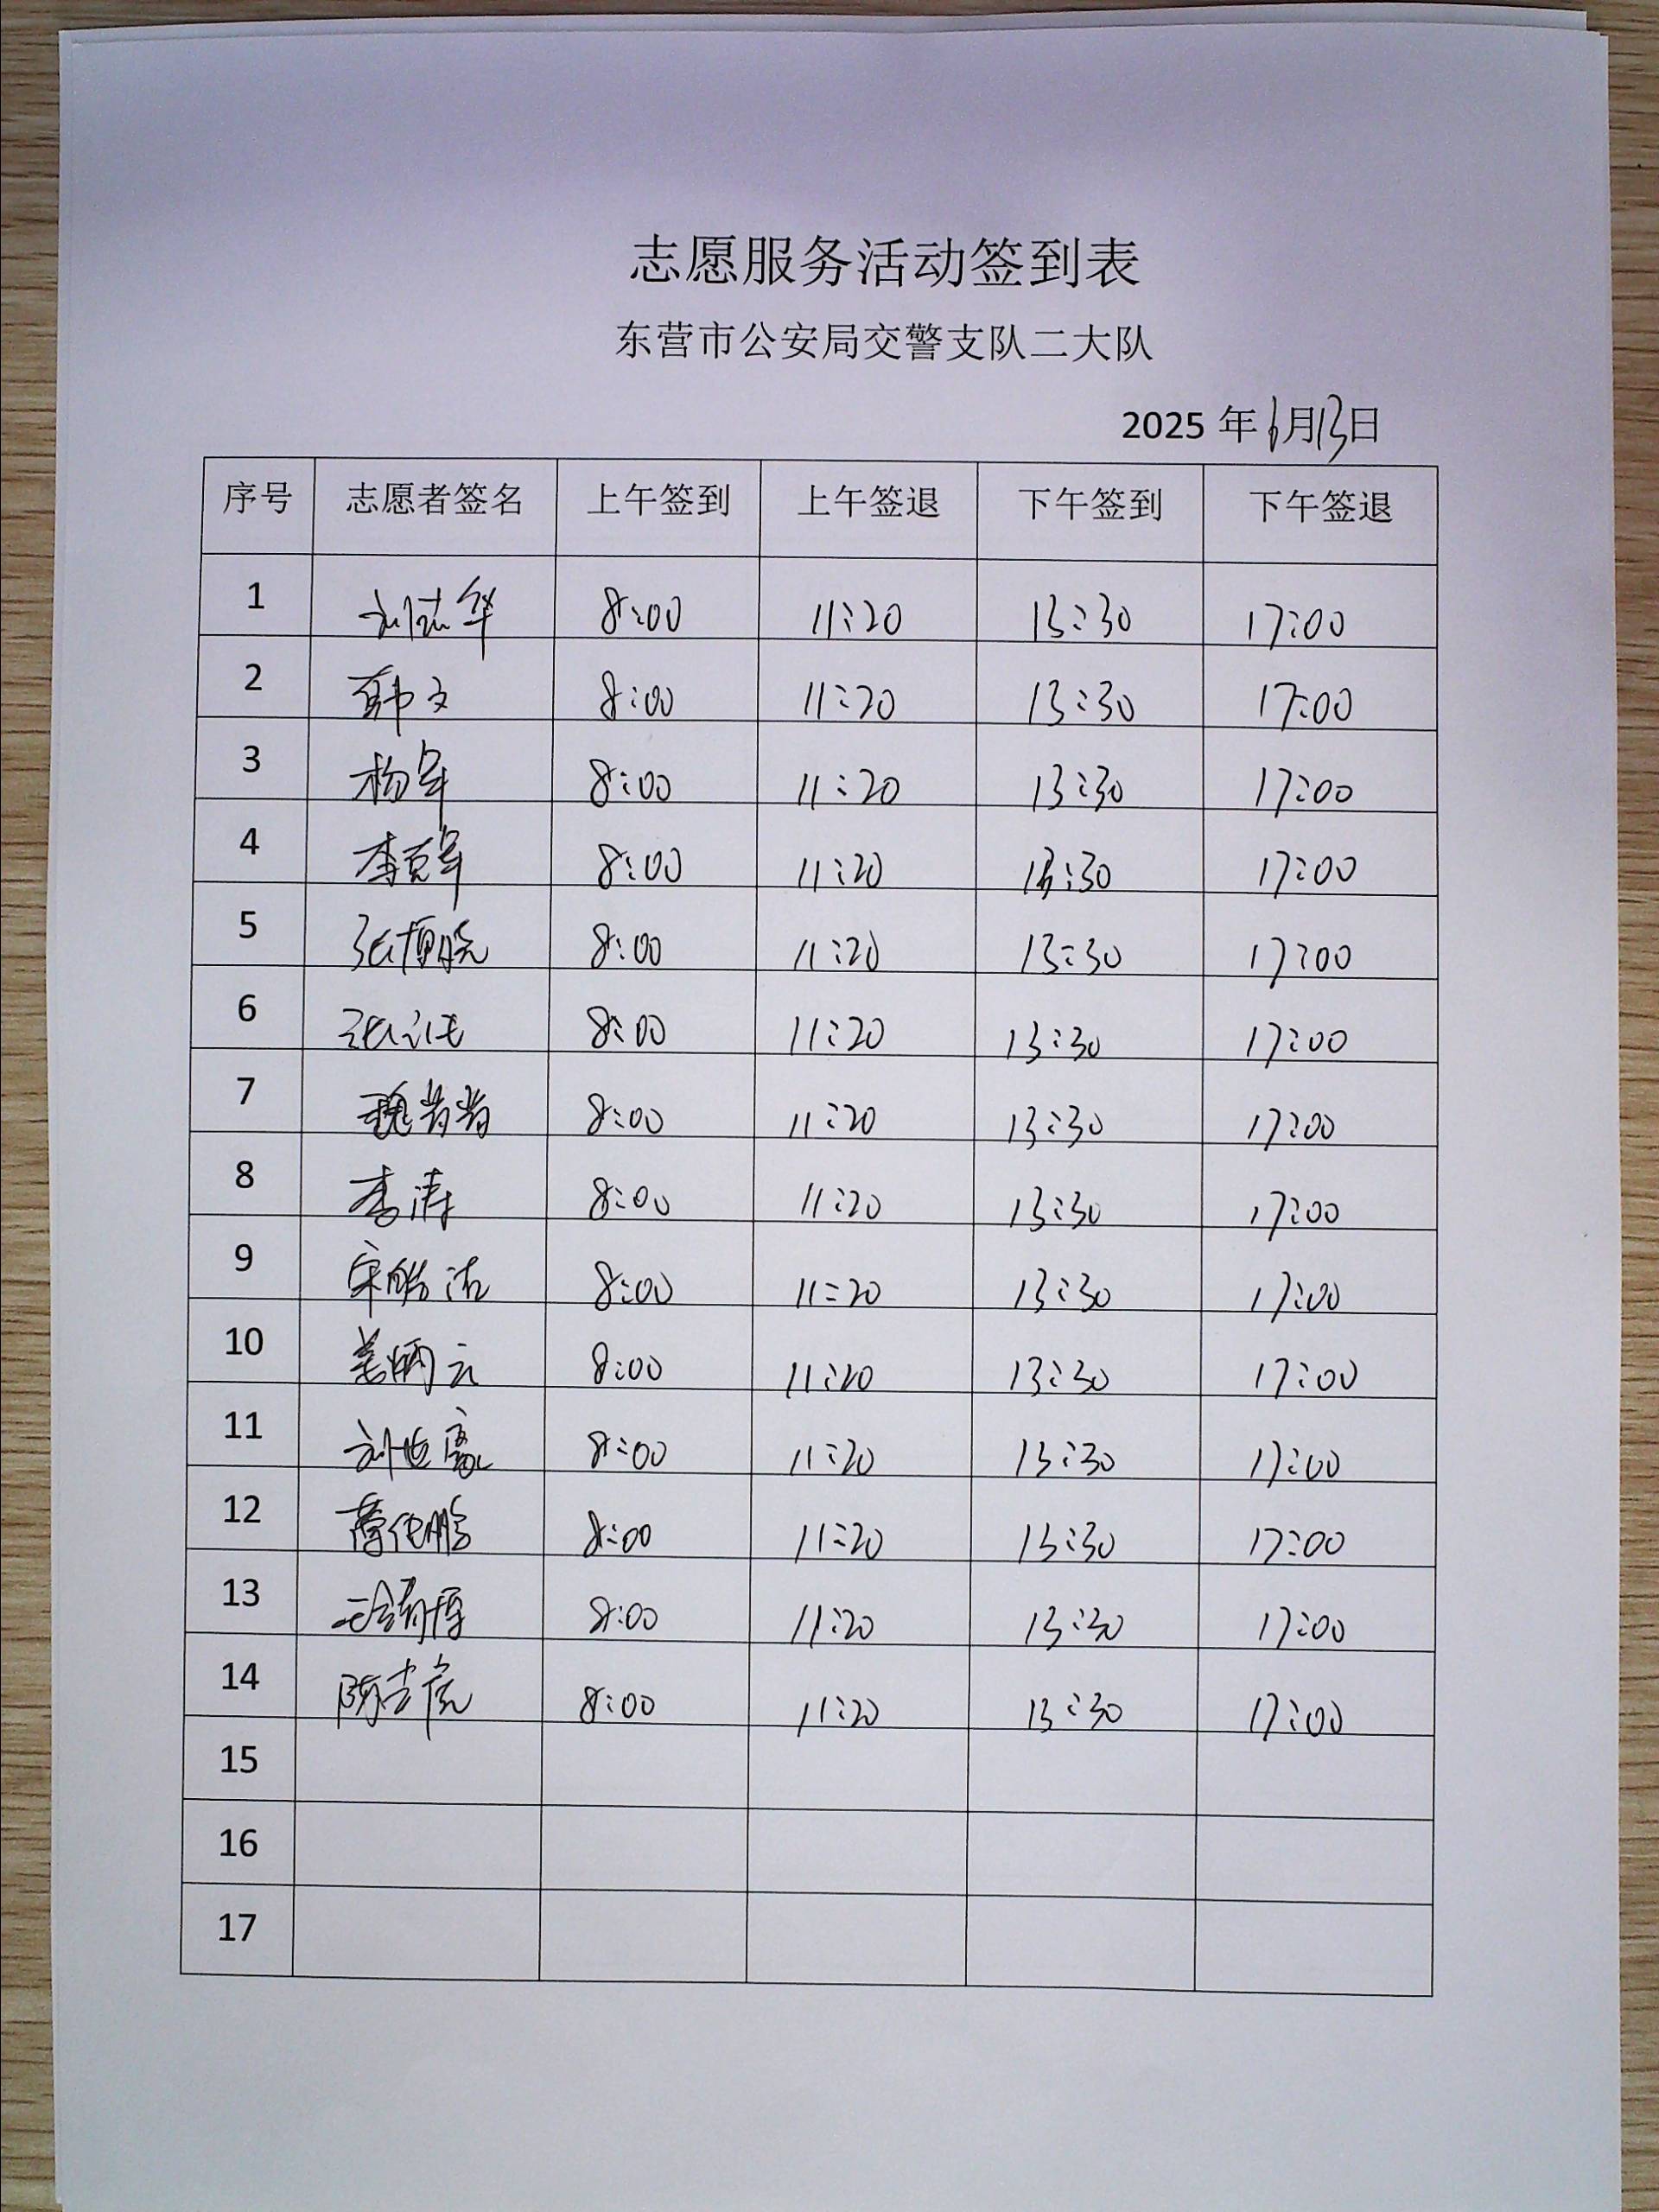 志愿服务活动签到表
东营市公安局交警支队二大队
2025 年 6月13日
序号 志愿者签名 上午签到 上午签退 下午签到 下午签退
1 刘志华 8:00 11:20 13:30 17:00
2 韩文 8:00 11:20 13:30 17:00
3 杨军 8:00 11:20 13:30 17:00
4 李克军 8:00 11:20 13:30 17:00
5 张博晓 8:00 11:20 13:30 17:00
6 8:00 11:20 13:30 17:00
7 魏菁菁 8:00 11:20 13:30 17:00
8 李涛 8:00 11:20 13:30 17:00
9 宋皓洁 8:00 11:20 13:30 17:00
10 姜炳云 8:00 11:20 13:30 17:00
11 8:00 11:20 13:30 17:00
12 8:00 11:20 13:30 17:00
13 8:00 11:20 13:30 17:00
14 陈吉虎 8:00 11:20 13:30 17:00
15
16
17